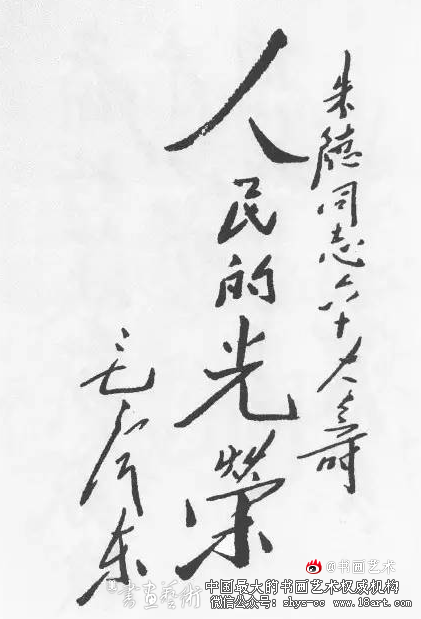 朱德同志六十大寿
人民的光荣
毛泽东
@书画艺术
書画藝術
中国最大的书画艺术权威机构
微信公众号: shys-cc www.18art.com